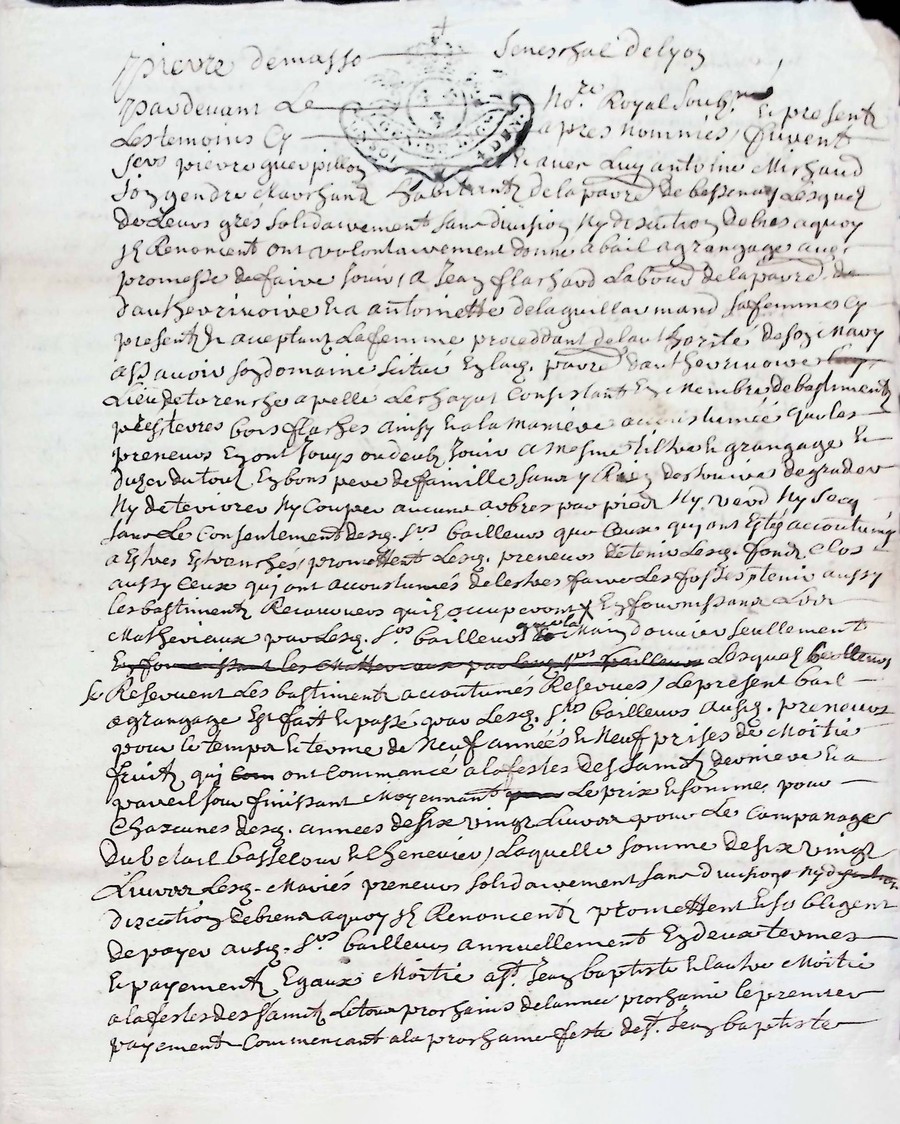 pierre demasso seneschal de lyon
pardevant Le no.re Royal soub.né Et present
Les temoins Cy apres nommés, furent
srs pierre guerpillon Et avec Luy antoine Michaud
son gendre Marchand habitantz de la parre de bessenay Lesquelz
de Leurs grés solidairement sans division Ny discution de bres a quoy
Ilz Renoncent ont volontairement donné a bail a grangage avec
promesse de faire Jouir, a Jean flachard Labour de la parre de
dauherivoire Et a antoinette delaguillarmaud sa femme Cy
presentz Et aceptantz La femme proceddant de lauthorité de son Mary
assavoir son domaine scitué En lad. parre dautherivoire
Lieu de apellé Le chayot Consistant En Membres de bastimentz
prés terres bois flaches ainsy Et a la Maniere accoustumée que les
preneurs En ont Jouys ou deub Jouir a Mesme tiltre de grangage Et
duzer du tout En bons pere de famille sans y Rien destruire degrader
Ny deteriorer Ny Couper aucuns arbres par pied Ny verd Ny secq
sans Le Consentement desd. srs bailleurs que Ceux quy ont Estés accoutumés
a Estres Esbranchés, promettent Lesd. preneurs de tenir Lesd. fondz Clos
aussy Ceux quy ont accoustumés de lestre faire Les fosses tenir aussy
les bastimentz Recouvers quilz occuperont En fournissant
Matherieaux par Lesd. srs bailleurs que la Main douvrier seullement
En fournissant les Matherieaux par lesd. srs bailleurs Lesquelz bailleurs
se Reservent Les bastimentz accoutumés Reservés, Le present bail
a grangage Est fait Et passé par Lesd. srs bailleurs ausd. preneurs
pour Le temps Et terme de Neuf années Et Neuf prises de Moitié
fruitz quy Com ont Commancé a la festes des saintz derniere Et a
pareil Jour finissant Moyennant pour Le prix Et somme, pour
Chascunes desd. années de six vingt Livres pour Le Campanage
du betail bassecour Et Chenevier, Laquelle somme de six vingt
Livres Lesd. Mariés preneurs solidairement sans division Ny
discution de biens a quoy Ilz Renoncentz promettent Et sobligent
de payer ausd. srs bailleurs annuellement En deux termes
Et payementz Egaux Moitié a st Jean baptiste Et lautre Moitié
a la festes des saintz Le tout prochains de lannée prochaine le premier
payement Commencant a la prochaine feste de st Jean baptiste